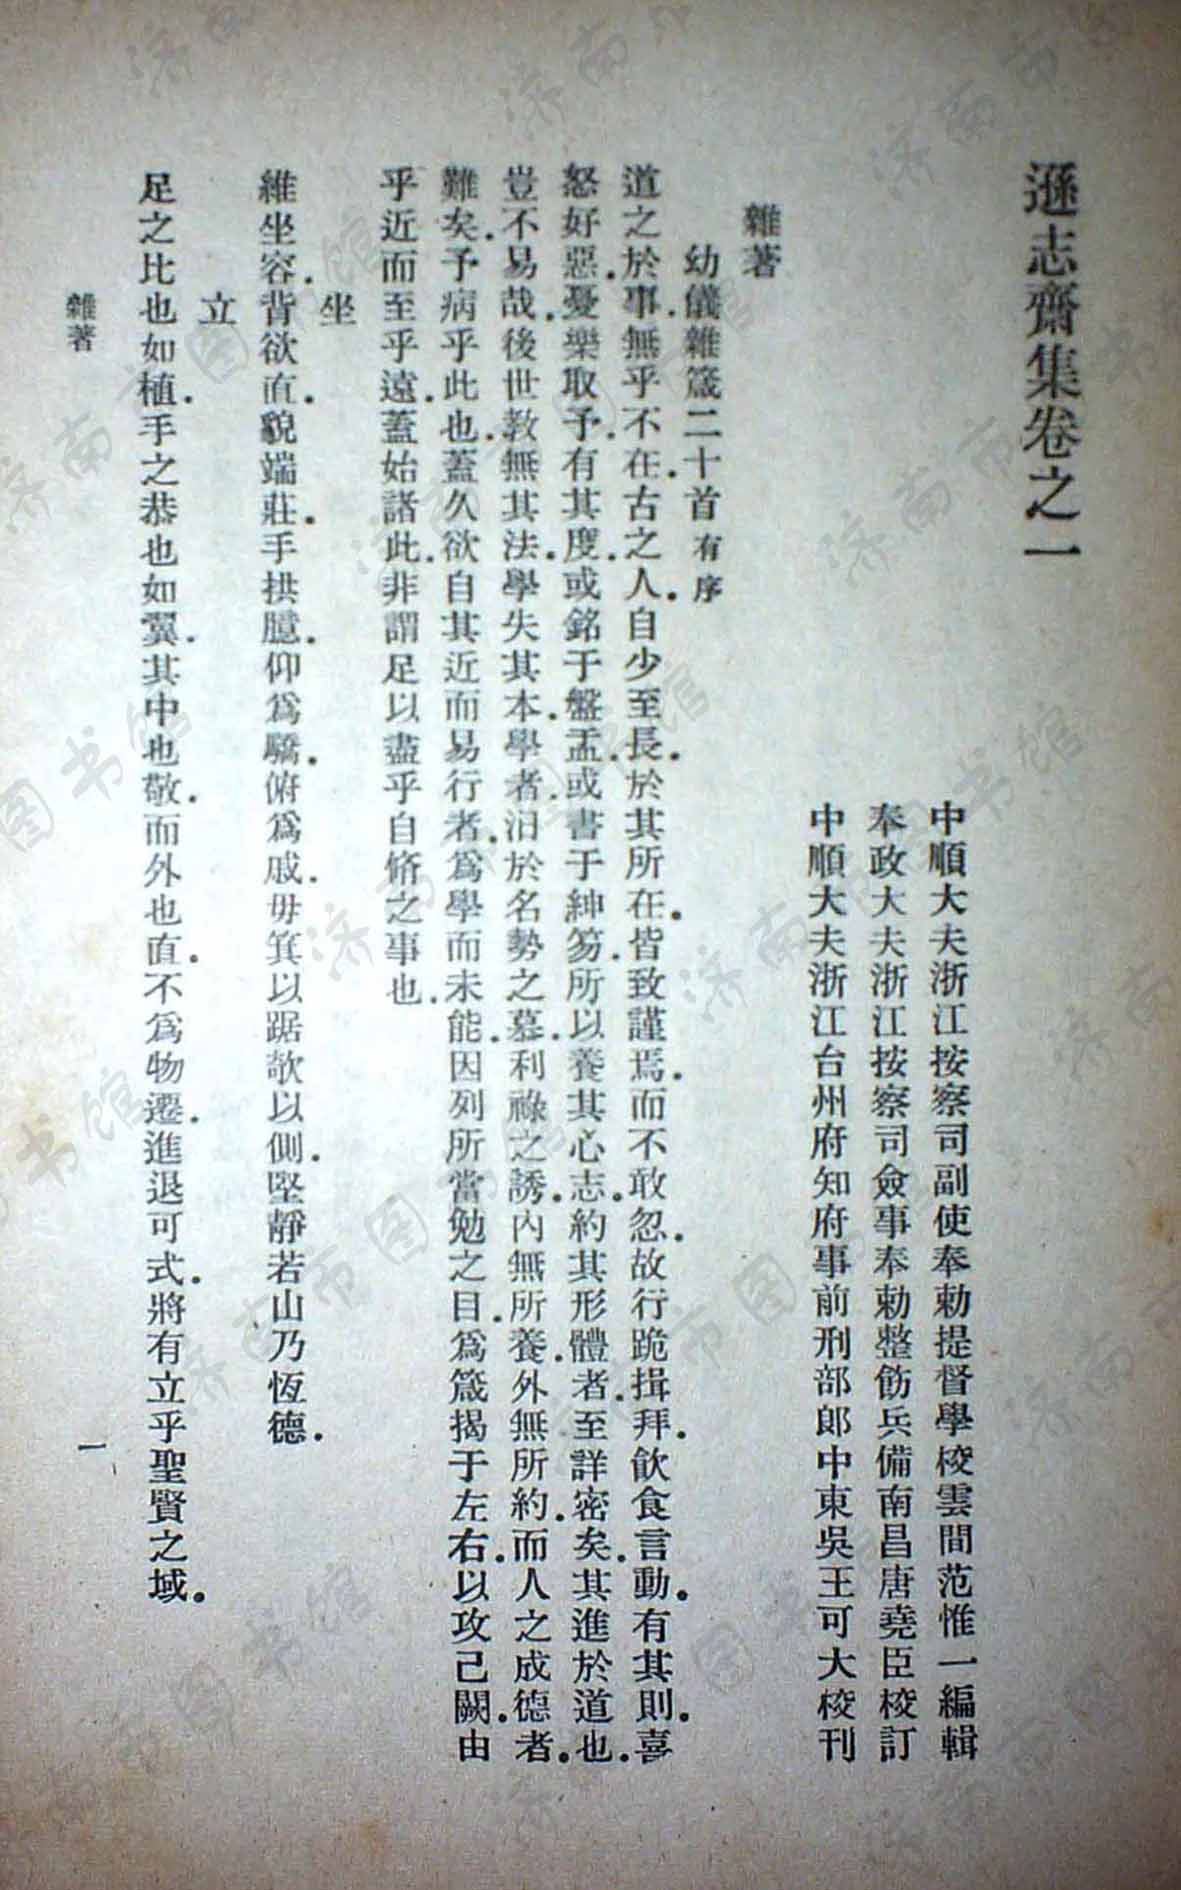 遜志齋集卷之一
中順大夫浙江按察司副使奉勅提督學校雲間范惟一編輯
奉政大夫浙江按察司僉事奉勅整飭兵備南昌唐堯臣校訂
中順大夫浙江台州府知府事前刑部郎中東吳王可大校刊
雜著
幼儀雜箴二十首有序
道之於事.無乎不在.古之人.自少至長.於其所在.皆致謹焉.而不敢忽.故行跪揖拜.飮食言動.有其則.喜
怒好惡.憂樂取予.有其度.或銘于盤盂.或書于紳笏.所以養其心志.約其形體者.至詳密矣.其進於道也.
豈不易哉.後世教無其法.學失其本.學者汨於名勢之慕.利祿之誘.內無所養.外無所約.而人之成德者.
難矣.予病乎此也.蓋久欲自其近而易行者.爲學而未能.因列所當勉之目爲箴揭于左右.以攻己闕.由
乎近而至乎遠.蓋始諸此.非謂足以盡乎自脩之事也.
坐
維坐容.背欲直.貌端莊.手拱臆.仰爲驕.俯爲戚.毋箕以踞欹以側.堅靜若山乃恆德.
立
足之比也如植.手之恭也如翼.其中也敬.而外也直.不爲物遷.進退可式.將有立乎聖賢之域.
雜著
一
济南市图书馆